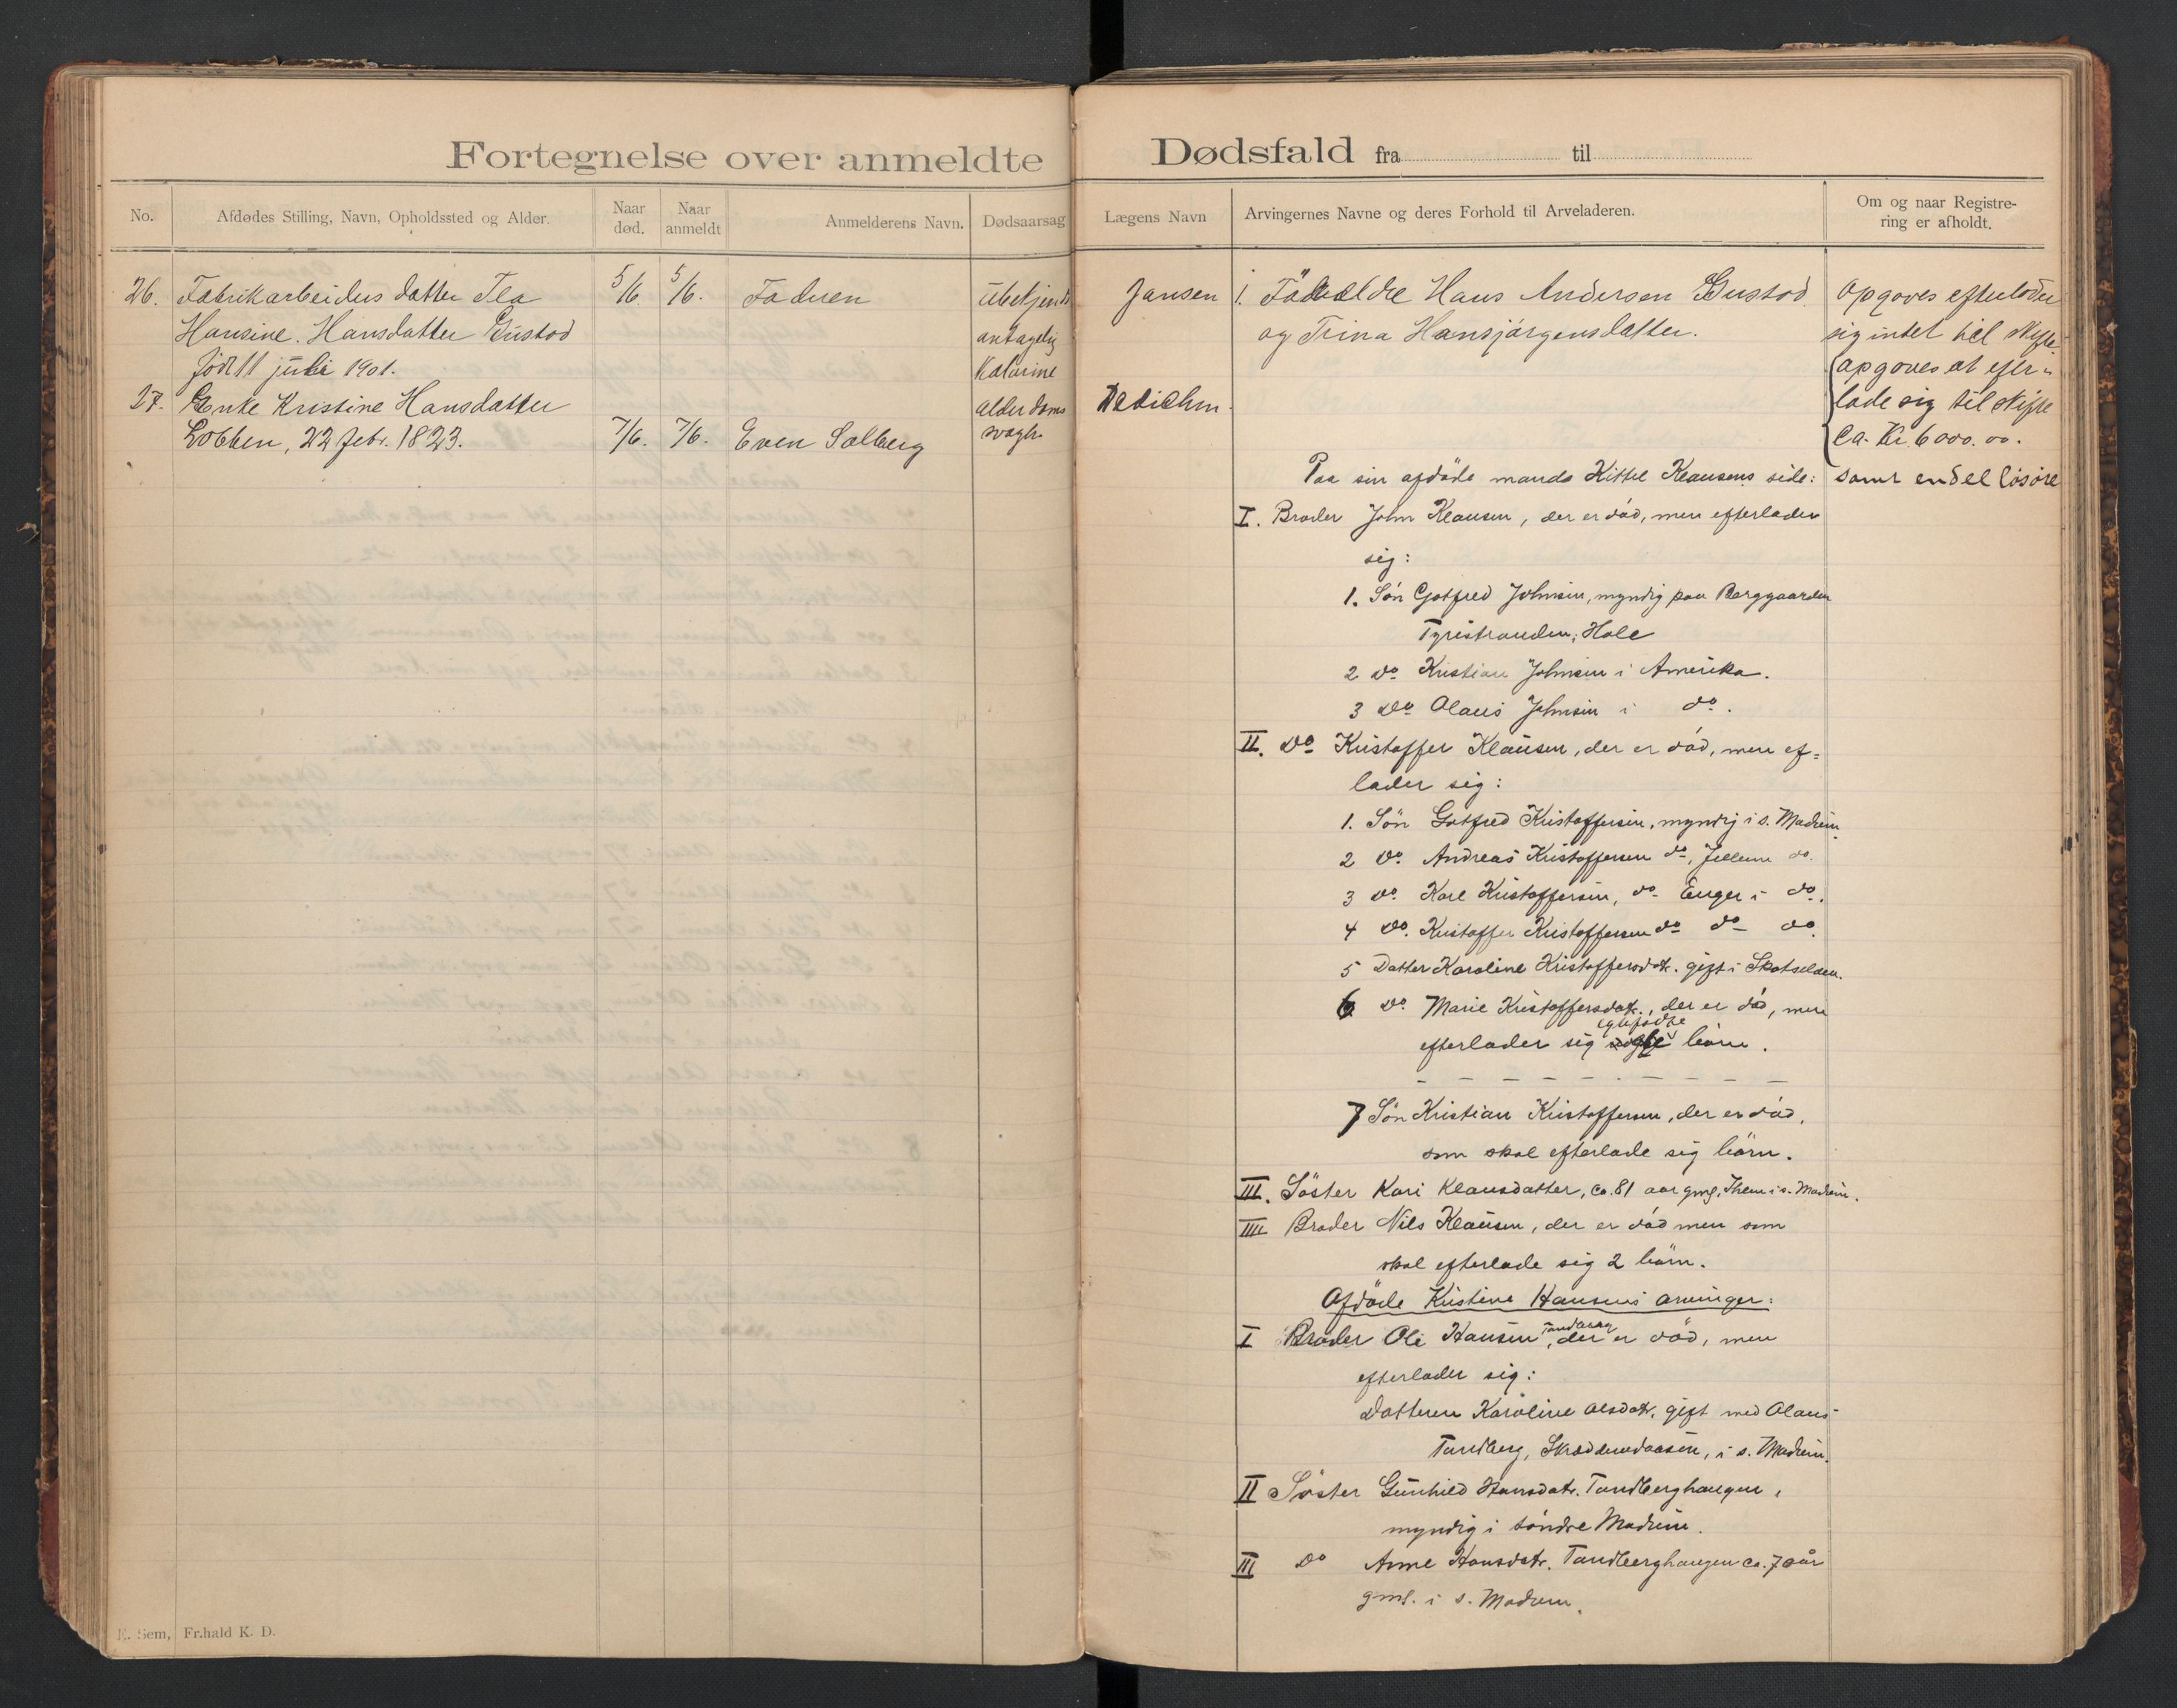 Fortegnelse over anmeldte
No.
Afdødes Stilling, Navn, Opholdssted og Alder.
Naar død.
Naar anmeldt
Anmelderens Navn.
Dødsaarsag
26. Fabrikarbeiders datter Tea 5/6. 5/6. Faderen Ubekjendt
Hansine Hansdatter Gustad antagelig
født 11 juli 1901. Katarine
27. Enke Kristine Hansdatter alderdoms
Lobben, 22 febr. 1823. 7/6. 7/6. Even Solberg svagh.
E. Sem, Fr.hald K. D.
Dødsfald fra til
Lægens Navn
Arvingernes Navne og deres Forhold til Arveladeren.
Om og naar Registre-
ring er afholdt.
Jansen 1. Forældre Hans Andersen Gustad opgoves efterlader
og Trina Hansjørgensdatter. sig intet til skifte
opgoves at efter-
lade sig til skifte
Ca. Kr 6000.00.
Paa sin afdøde mands Kittel Klausens side: samt en del løsøre
I. Broder John Klausen, der er død, men efterlader
sig:
1. Søn Gotfred Johnsen, myndig paa Berggaarden
Tyristranden, Hole
2 do. Kristian Johnsen i Amerika.
3 do Olaus Johnsen i do.
II. do Kristoffer Klausen, der er død, men ef=
lader sig:
1. Søn Gotfred Kristoffersen, myndig i s. Modum
2 do. Andreas Kristoffersen do, do.
3 do. Karl Kristoffersen, do Enger i do.
4 do. Kristoffer Kristoffersen do do do.
5 Datter Karoline Kristoffersdatr. gift i Skotselven.
6 do. Marie Kristoffersdatr., der er død, men
egtefødte
efterlader sig børn.
7 Søn Kristian Kristoffersen, der er død,
som skal efterlade sig børn.
III. Søster Kari Klausdatter, ca. 81 aar gml, i s. Modum.
IIII Broder Nils Klausen, der er død men som
skal efterlade sig 2 børn.
Afdøde Kristine Hansens arvinger:
I Broder Ole Hansen Tandberg, der er død, men
efterlader sig:
Datteren Karoline Olsdatr, gift med Olaus
Tandberg, i s. Modum.
II Søster Gunhild Hansdatr. Tandberghaugen,
myndig i søndre Modum.
III do Anne Hansdatr. Tandberghaugen ca. 70 år
gml. i s. Modum.